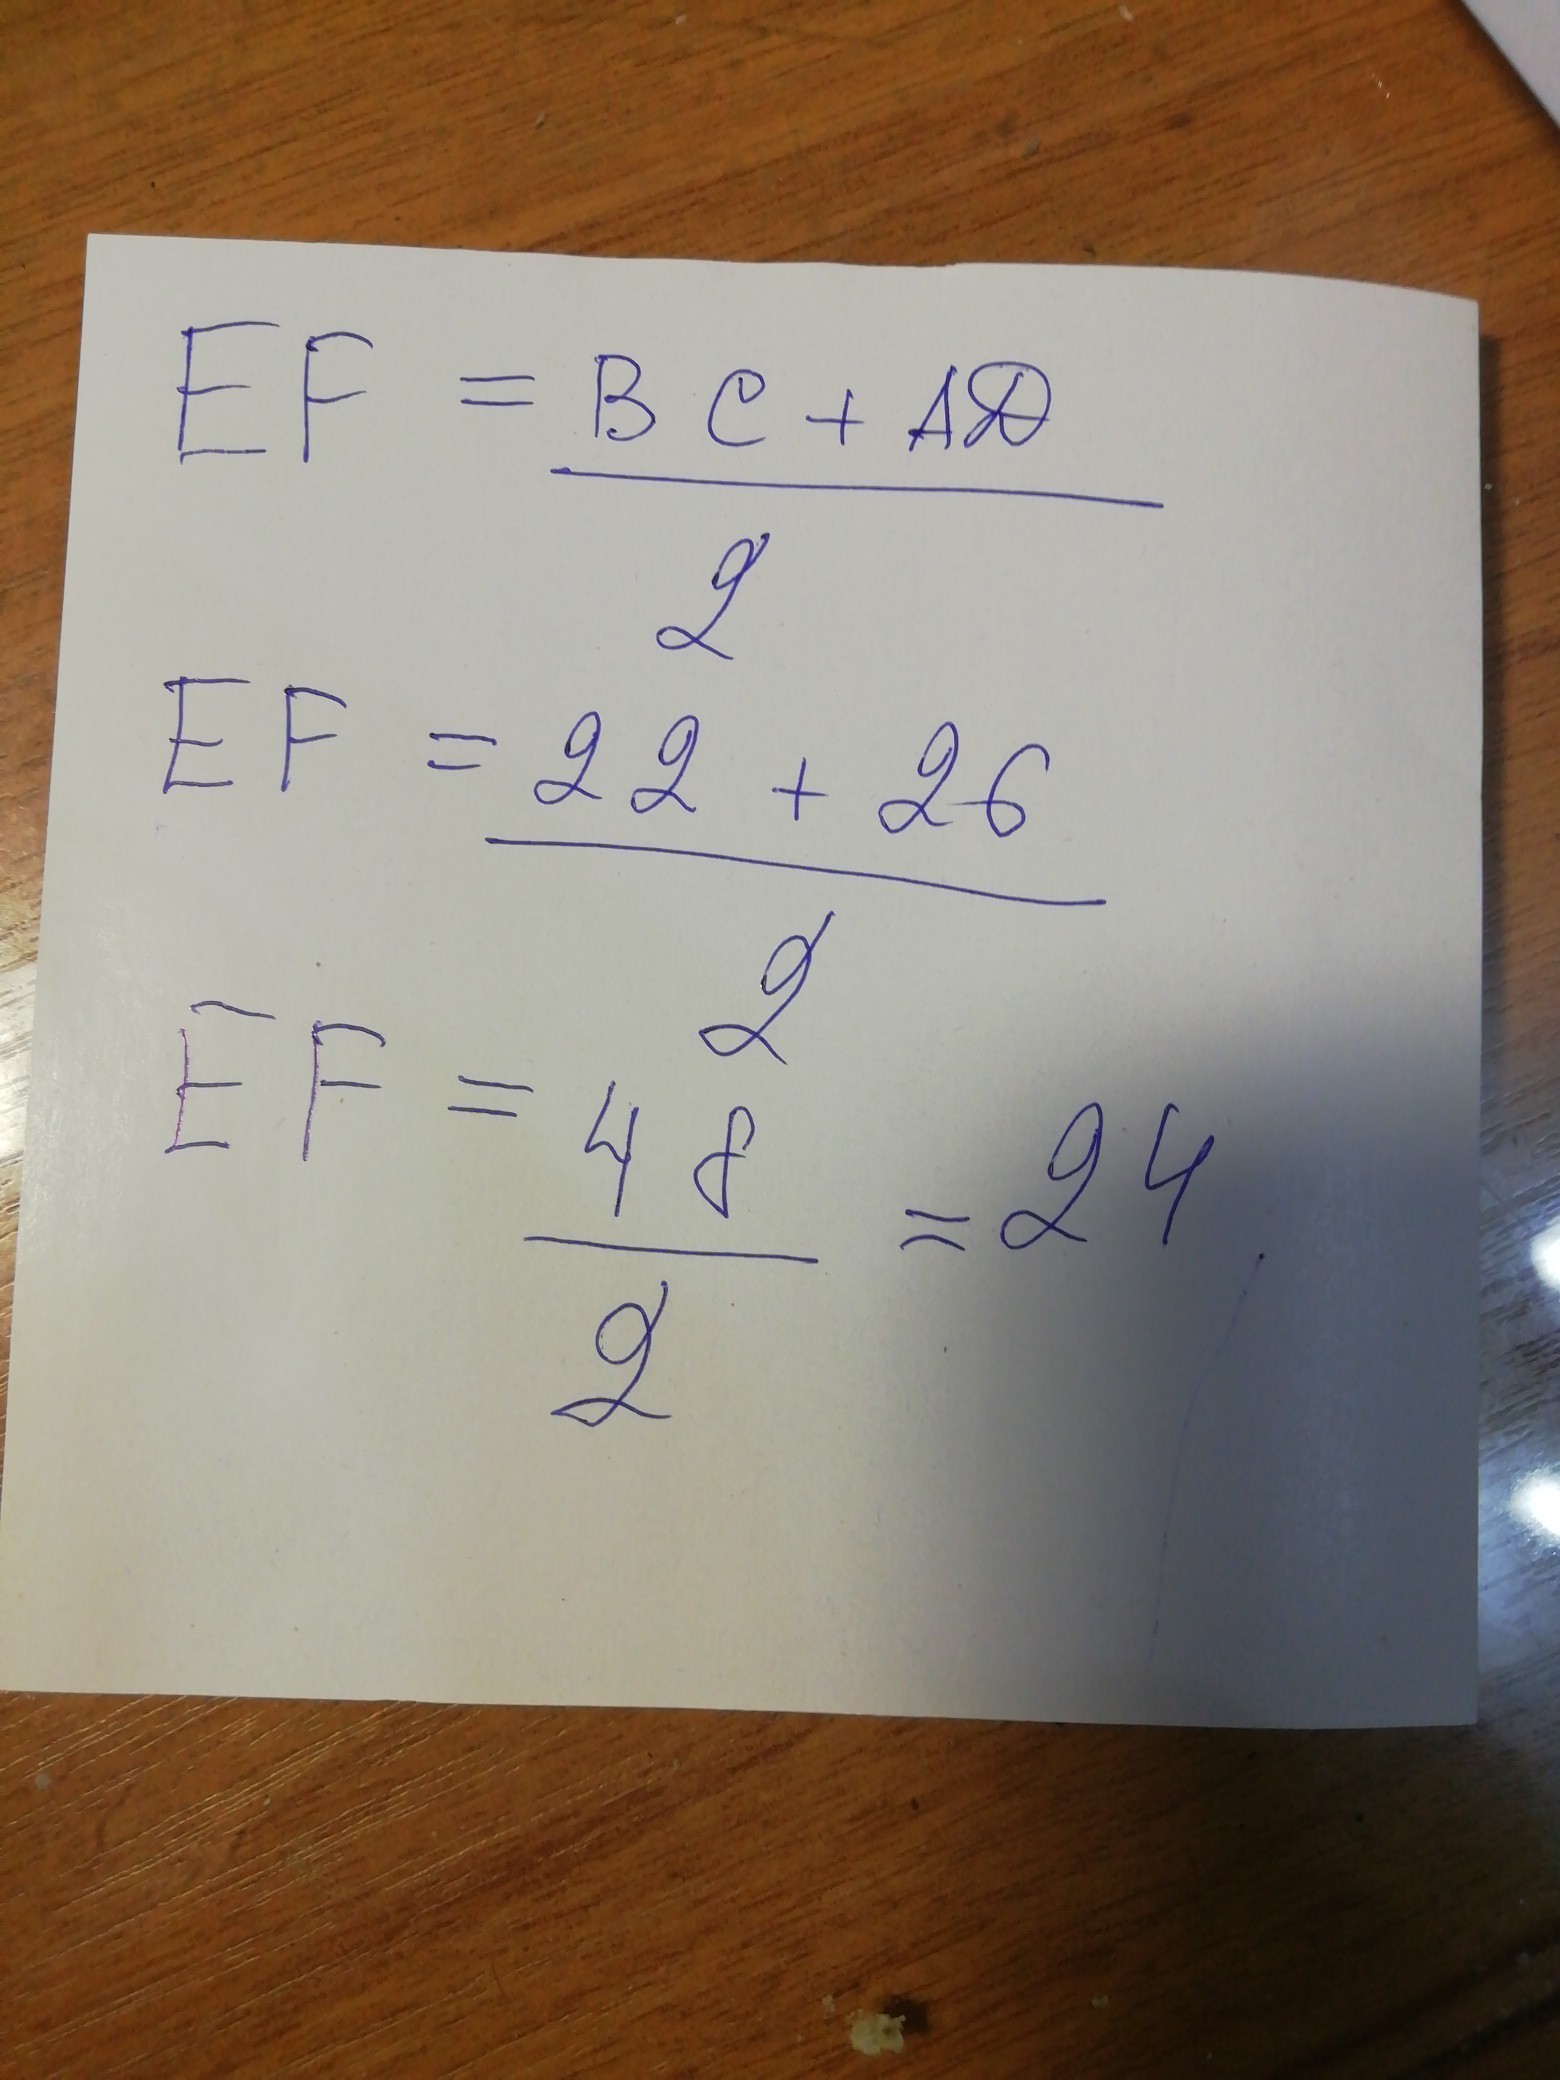 EF = BC + AD
2
EF = 22 + 26
2
EF = 48 = 24
2